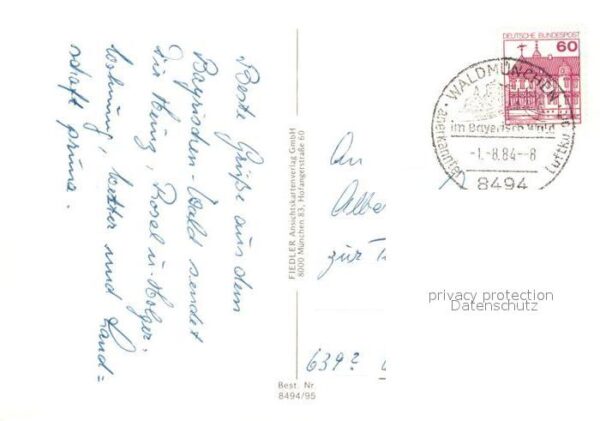 Beste Grüße aus dem
Bayrischen-Wald sendet
Die Heinz, Rosel u. Holger,
Wohnung, Wetter und Land=
schaft prima.
FIEDLER Ansichtskartenverlag GmbH
8000 München 83, Hofangerstraße 60
Best. Nr
8494/95
DEUTSCHE BUNDESPOST
60
WALDMÜNCHEN
im Bayerisch. Wald
-1.-8.84--8
8494
anerkannter Luftkurort
An
Albe
zur
639?
privacy protection
Datenschutz